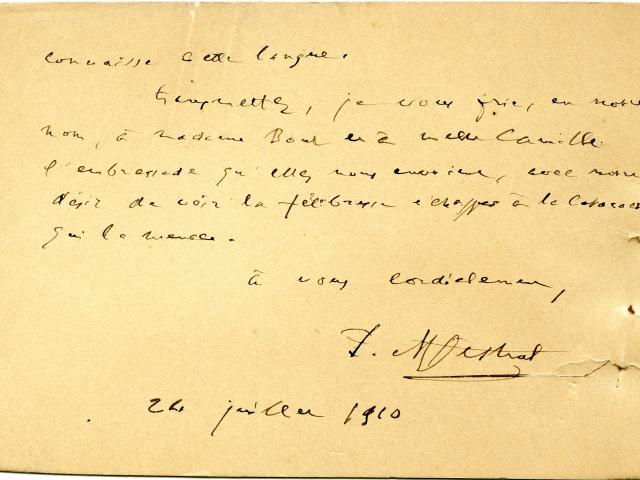 connaisse cette langue.
transmettez, je vous prie, en notre
nom, à madame Bout et à melle Camille
l'embrassade qu'elles nous envoient, avec notre
désir de voir la félibresse échapper à la
qui la menace.
à vous cordialement,
F. Mistral
24 juillet 1910